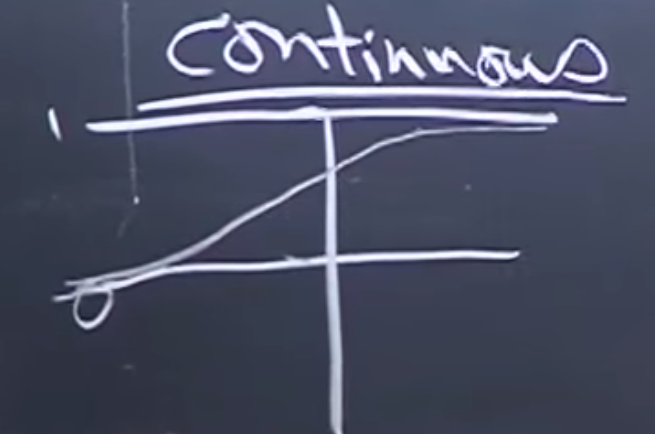 continuous
1
0